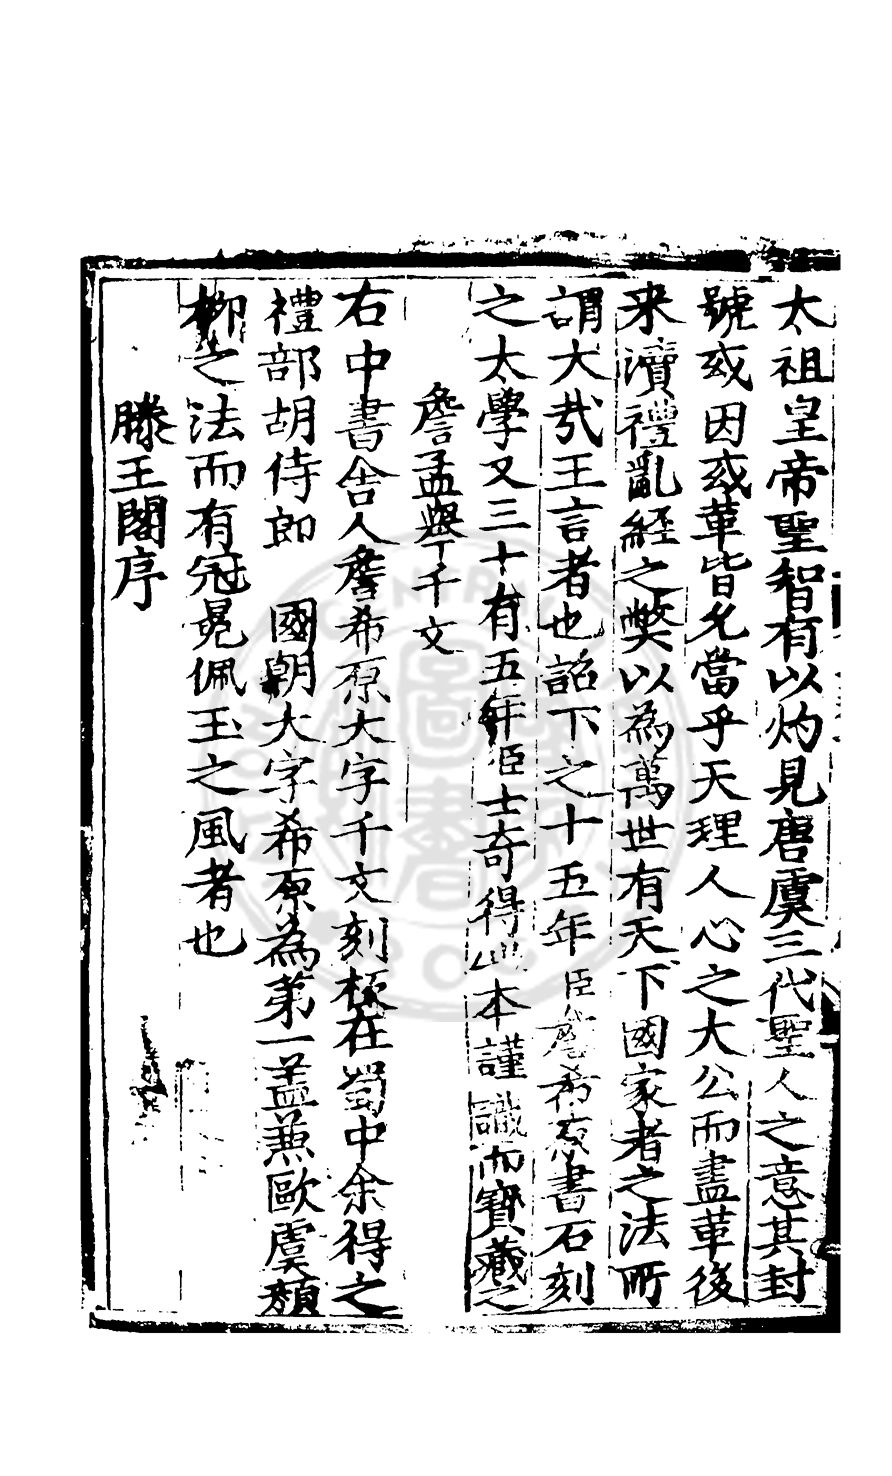 太祖皇帝聖智有以灼見唐虞三代聖人之意其封
號或因或革皆允當乎天理人心之大公而盡革後
来瀆禮亂經之獘以為萬世有天下國家者之法所
謂大哉王言者也詔下之十五年臣詹希原書石刻
之太學又三十有五年臣士奇得此本謹識而寶藏之
詹孟舉千文
右中書舍人詹希原大字千文刻板在蜀中余得之
禮部胡侍郎 國朝大字希原為第一盖兼歐虞顏
柳之法而有冠冕佩玉之風者也
滕王閣序